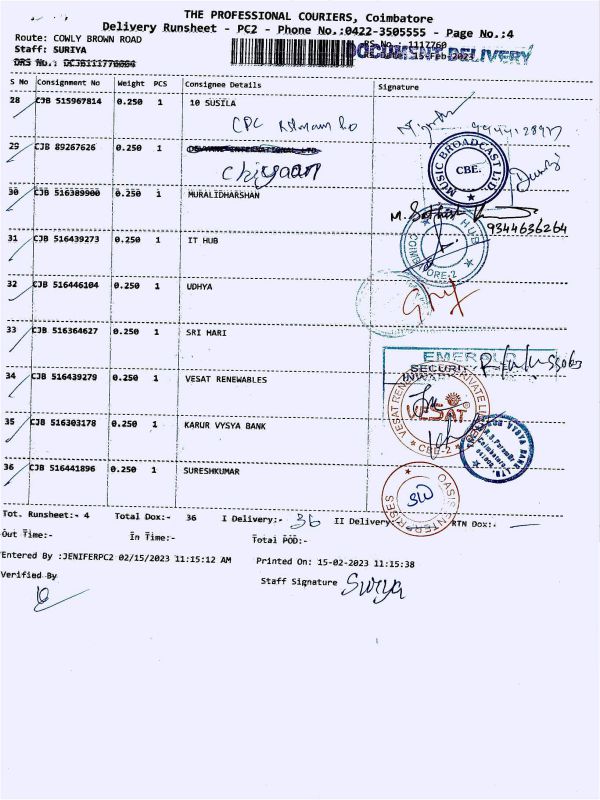 THE PROFESSIONAL COURIERS, Coimbatore
Delivery Runsheet - PC2 - Phone No.:0422-3505555 - Page No.:4
Route: COWLY BROWN ROAD
RS No.: 1117760
DOCUMENT DELIVERY
Staff: SURIYA
RS Date: 15-Feb-2023
DRS No.: DCJB111776004
S No Consignment No Weight PCS Consignee Details Signature
28 CJB 515967814 0.250 1 10 SUSILA
CPC
29 CJB 89267626 0.250 1
MUSIC BROADCAST LtD.
CBE.
30 CJB 516389900 0.250 1 MURALIDHARSHAN
9344636264
31 CJB 516439273 0.250 1 IT HUB
COIMBATORE-2
32 CJB 516446104 0.250 1 UDHYA
33 CJB 516364627 0.250 1 SRI HARI
EMERALD
SECURITY
34 CJB 516439279 0.250 1 VESAT RENEWABLES
VESAT RENEWABLES PRIVATE LIMITED
VESAT
CBE-2
35 CJB 516303178 0.250 1 KARUR VYSYA BANK
36 CJB 516441896 0.250 1 SURESHKUMAR
OASIS ENTERPRISES
Tot. Runsheet:- 4 Total Dox:- 36 I Delivery:- 36 II Delivery:- RTN Dox:- —
Out Time:- In Time:- Total POD:-
Entered By :JENIFERPC2 02/15/2023 11:15:12 AM Printed On: 15-02-2023 11:15:38
Verified By
Staff Signature Surya